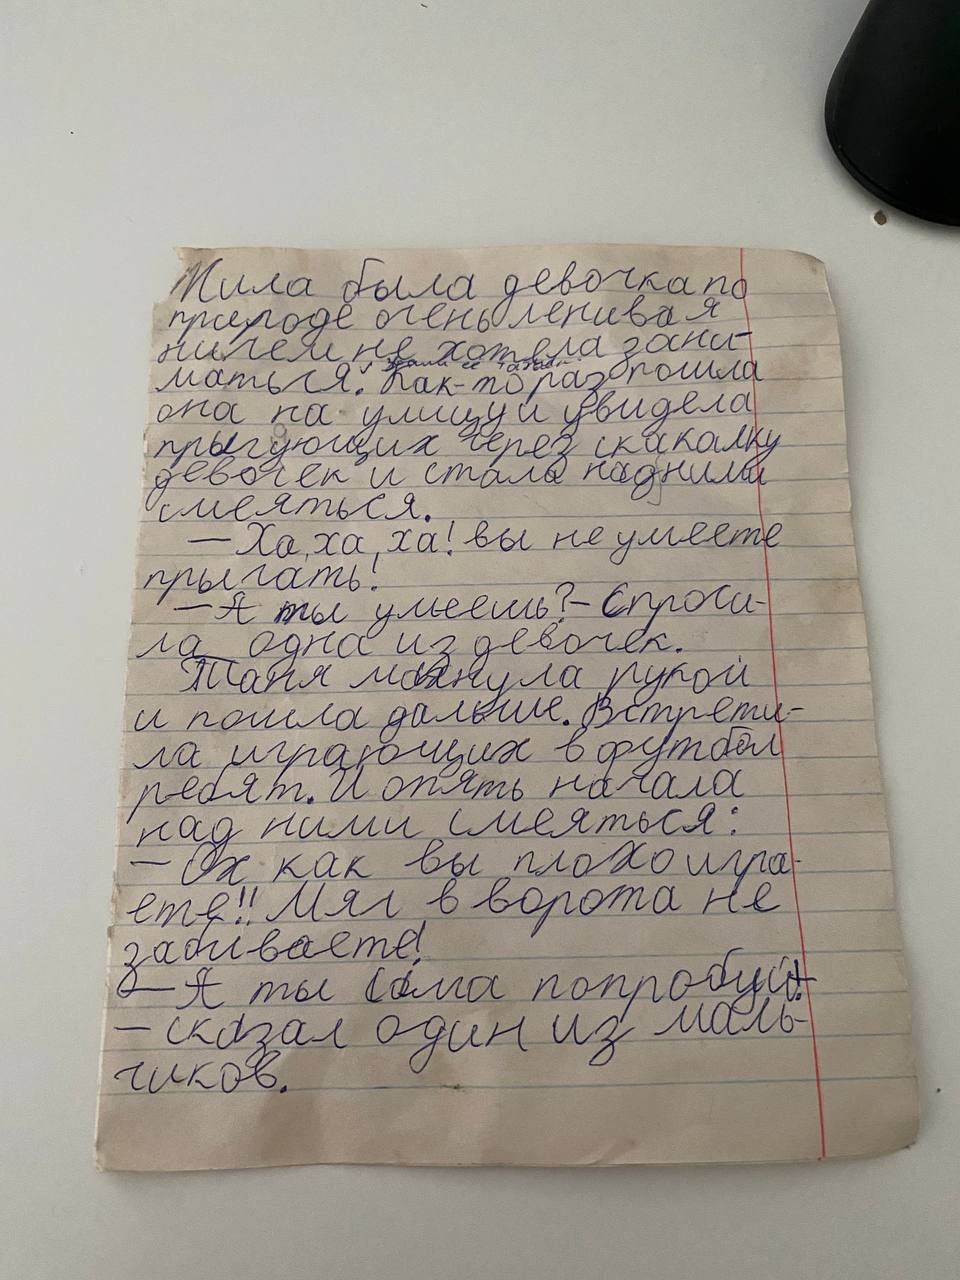 Жила была девочка по
природе очень ленивая
ничем не хотела зани-
маться. Звали её Таня. Как-то раз пошла
она на улицу и увидела
прыгующих через скакалку
девочек и стала над ними
смеяться.
— Ха, ха, ха! вы не умеете
прыгать!
— А ты умеешь? – Спроси-
ла одна из девочек.
Таня махнула рукой
и пошла дальше. Встрети-
ла играющих в футбол
ребят. И опять начала
над ними смеяться:
— Ох как вы плохо игра-
ете!! Мяч в ворота не
забиваете!
— А ты сама попробуй!
— сказал один из маль-
чиков.